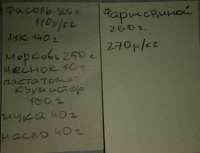 Фасоль 300г
110р/кг
лук 40г
морковь 250г
чеснок 10г
паста том
кумин тёр
100г
мука 40г
масло 40г
Фарш свиной
200г.
270р/кг